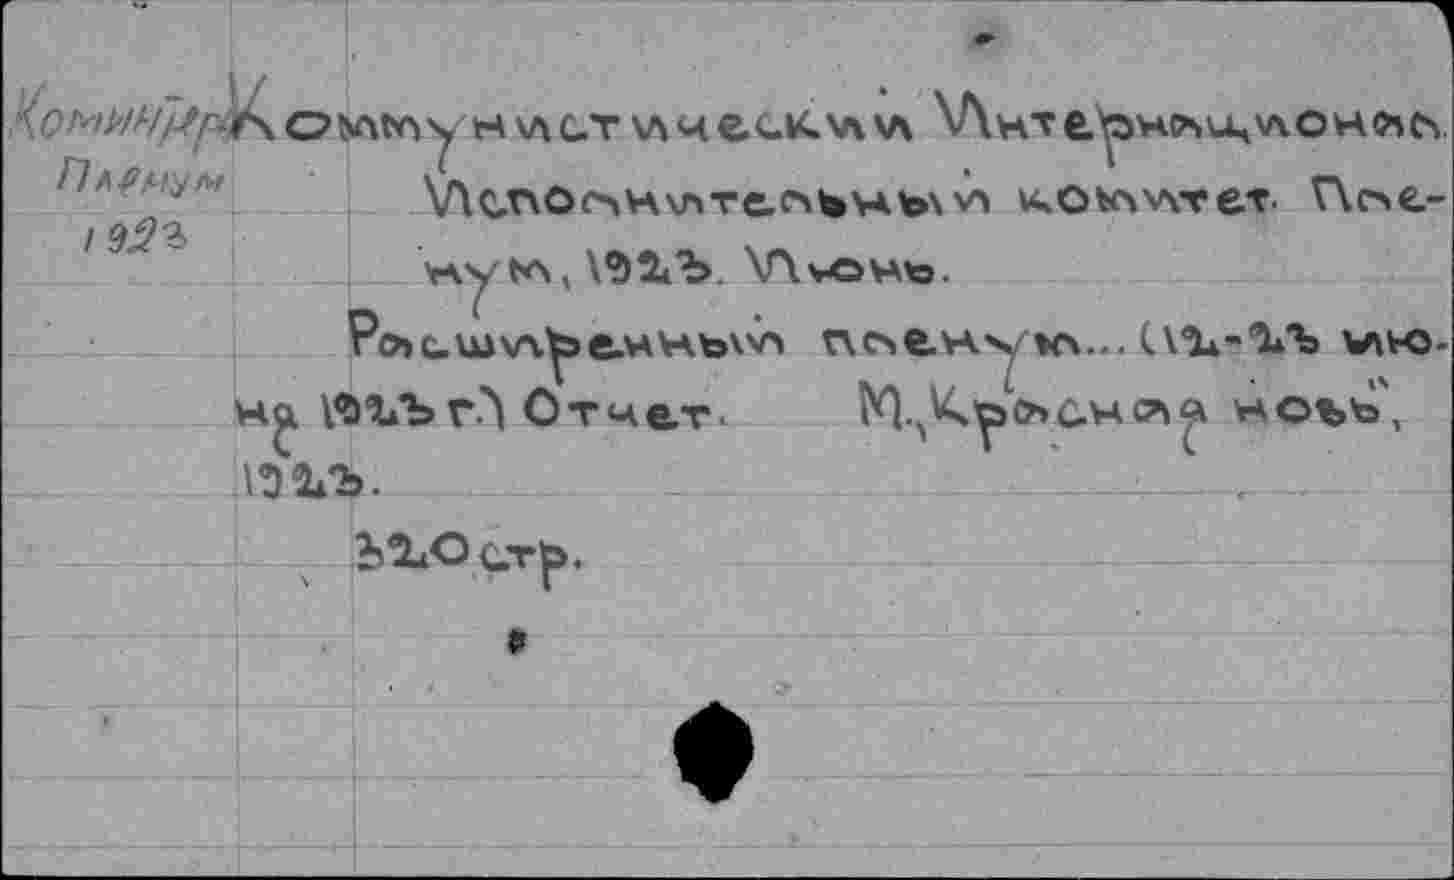 Коминтерн
Пленум
1923
Коммунистический Интернационал
Исполнительный комитет. Пле-
нум, 1923. Июнь.
Расширенный пленум... (12-23 ию-
ня 1923 г.) Отчет. М., Красная новь,
1923.
320 стр.